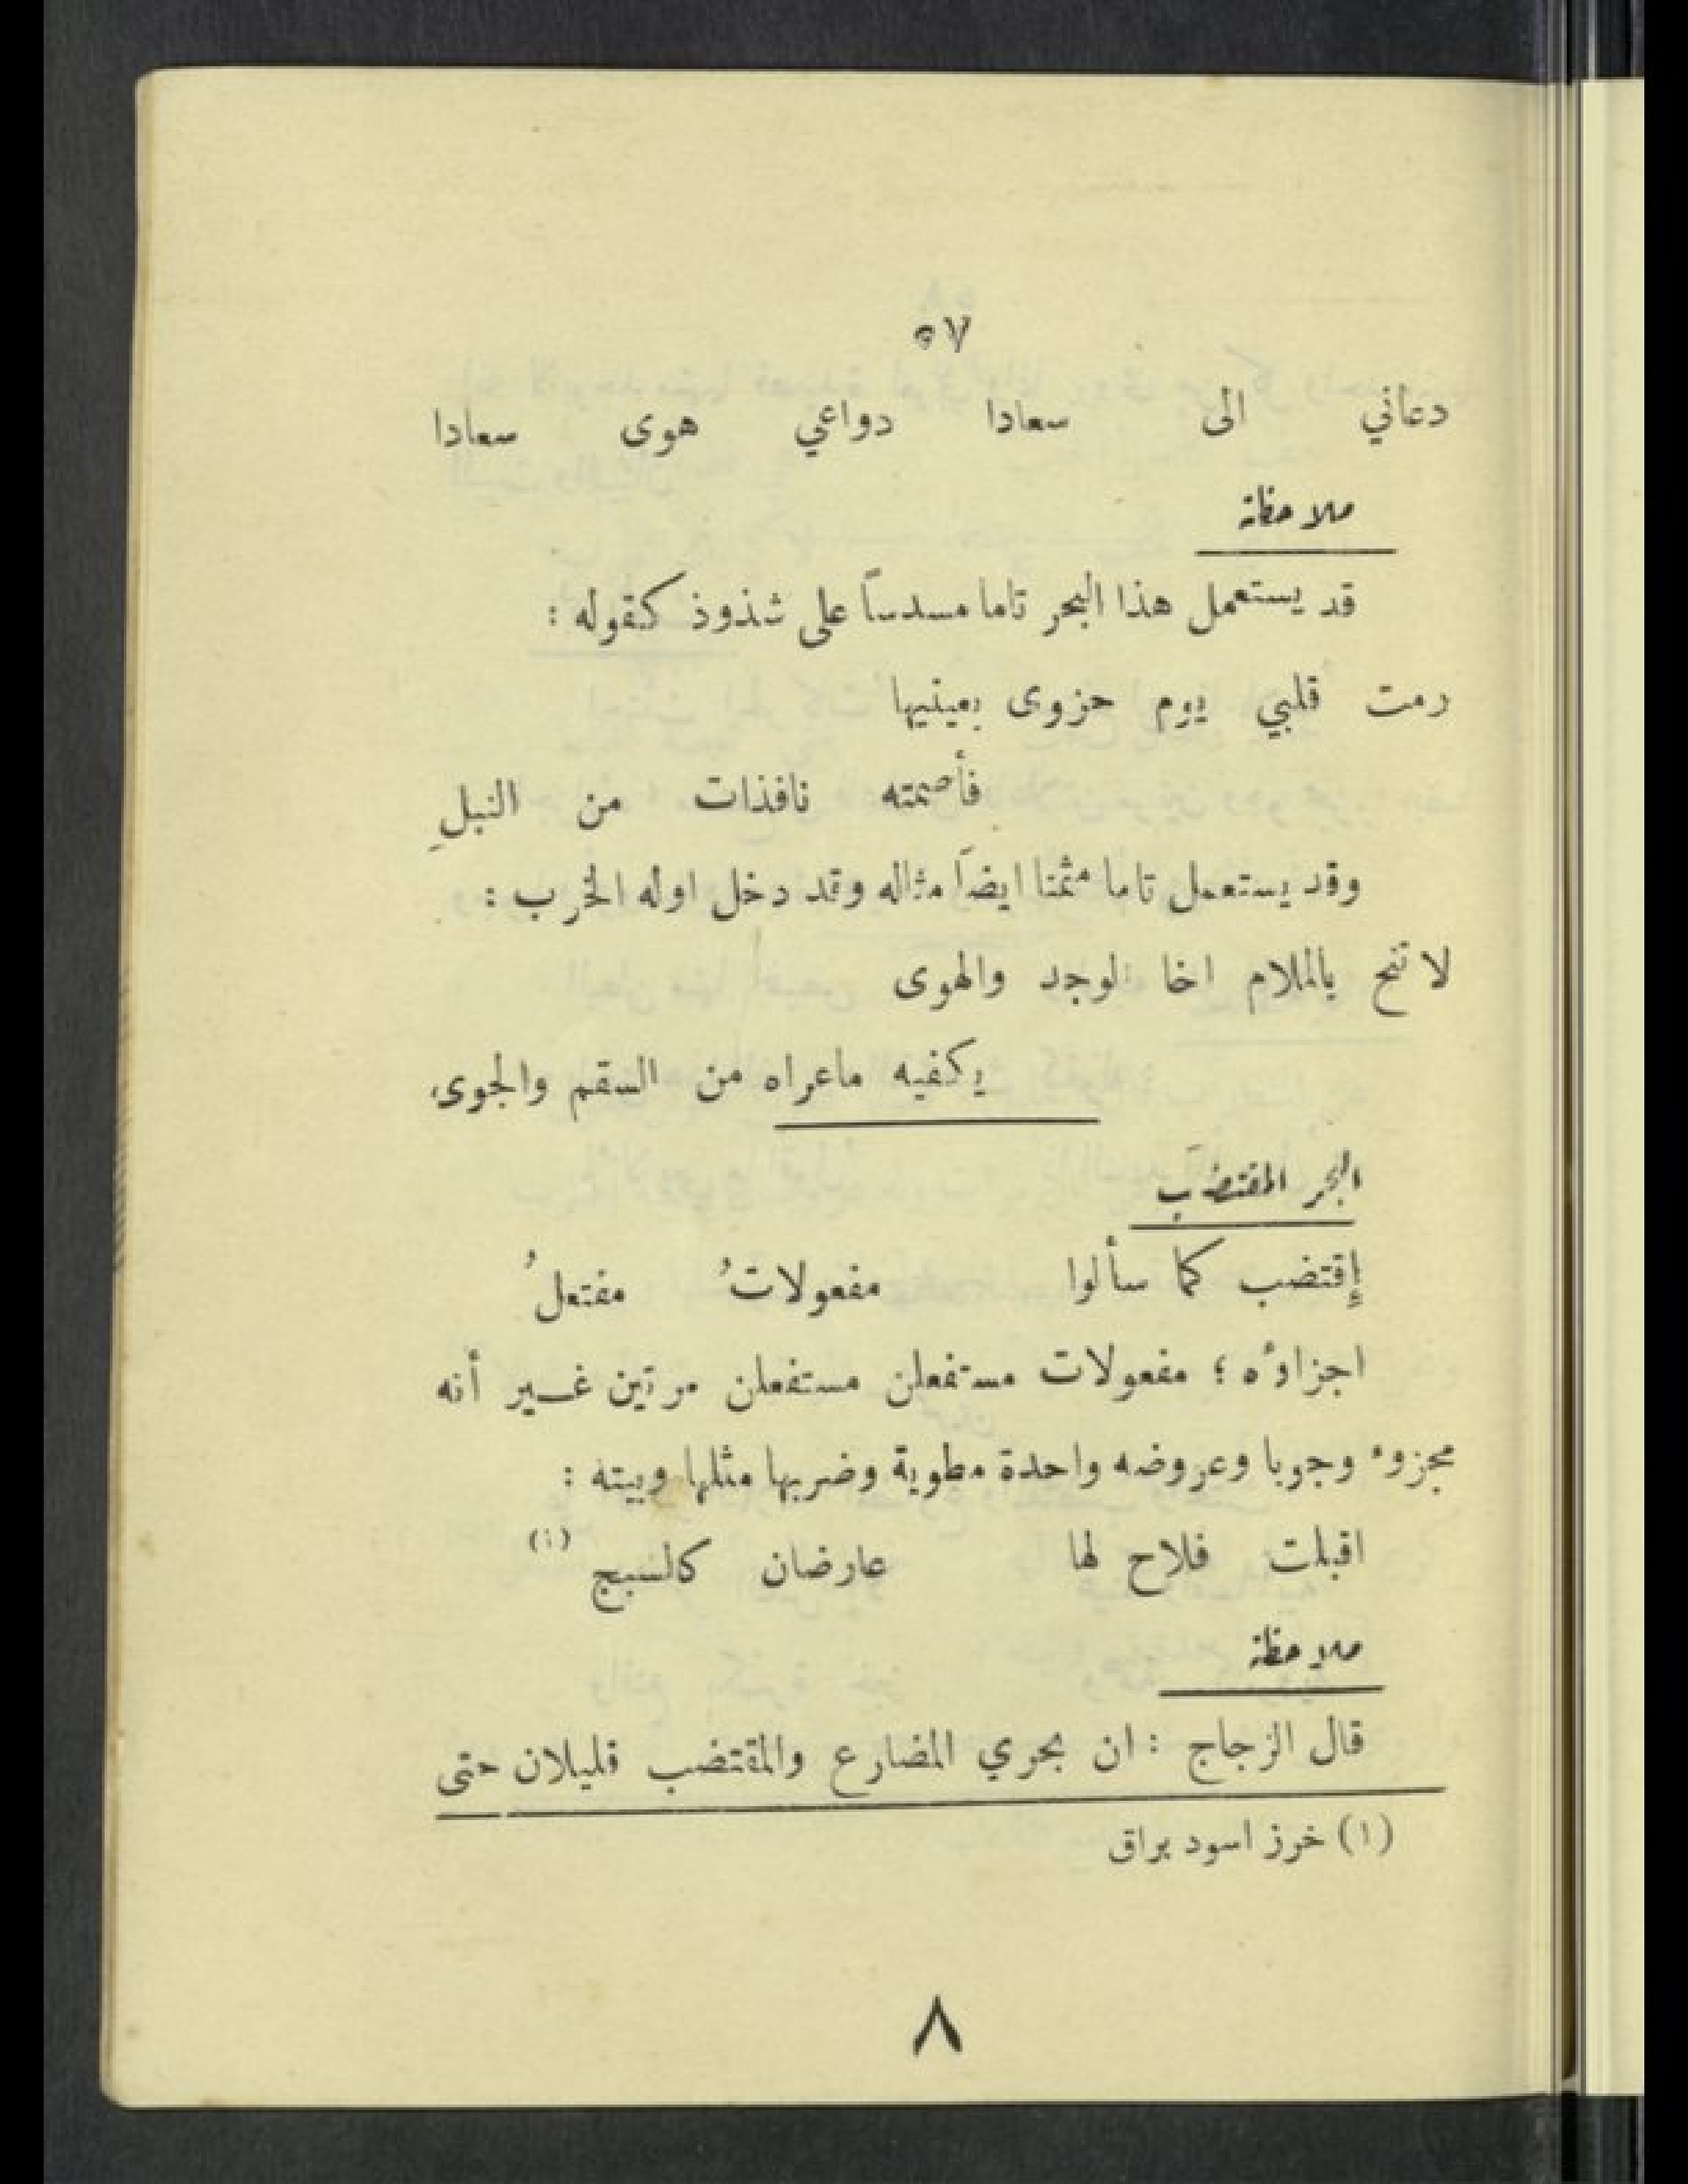 ٥٧
دعاني الى سعادا دواعي هوى سعادا
ملاحظة
قد يستعمل هذا البحر تاما مسدساً على شذوذ كقوله :
رمت قلبي يوم حزوى بعينيها
فأصمته نافذات من النبلِ
وقد يستعمل تاما مثمنا ايضاً مثاله وقد دخل اوله الخرب :
لا تنح بالملام اخا الوجد والهوى
يكفيه ماعراه من السقم والجوى
البحر المقتضب
إقتضب كما سألوا مفعولاتُ مفتعلُ
اجزاؤه ؛ مفعولات مستفعلن مستفعلن مرتين غير أنه
مجزوء وجوبا وعروضه واحدة مطوية وضربها مثلها وبيته :
اقبلت فلاح لها عارضان كالسبج (١)
ملاحظة
قال الزجاج : ان بحري المضارع والمقتضب قليلان حتى
(١) خرز اسود براق
٨